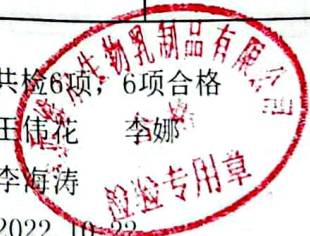 共检6项，6项合格
王伟花 李娜
李海涛
2022.10.22
生物乳制品有限公司
检验专用章